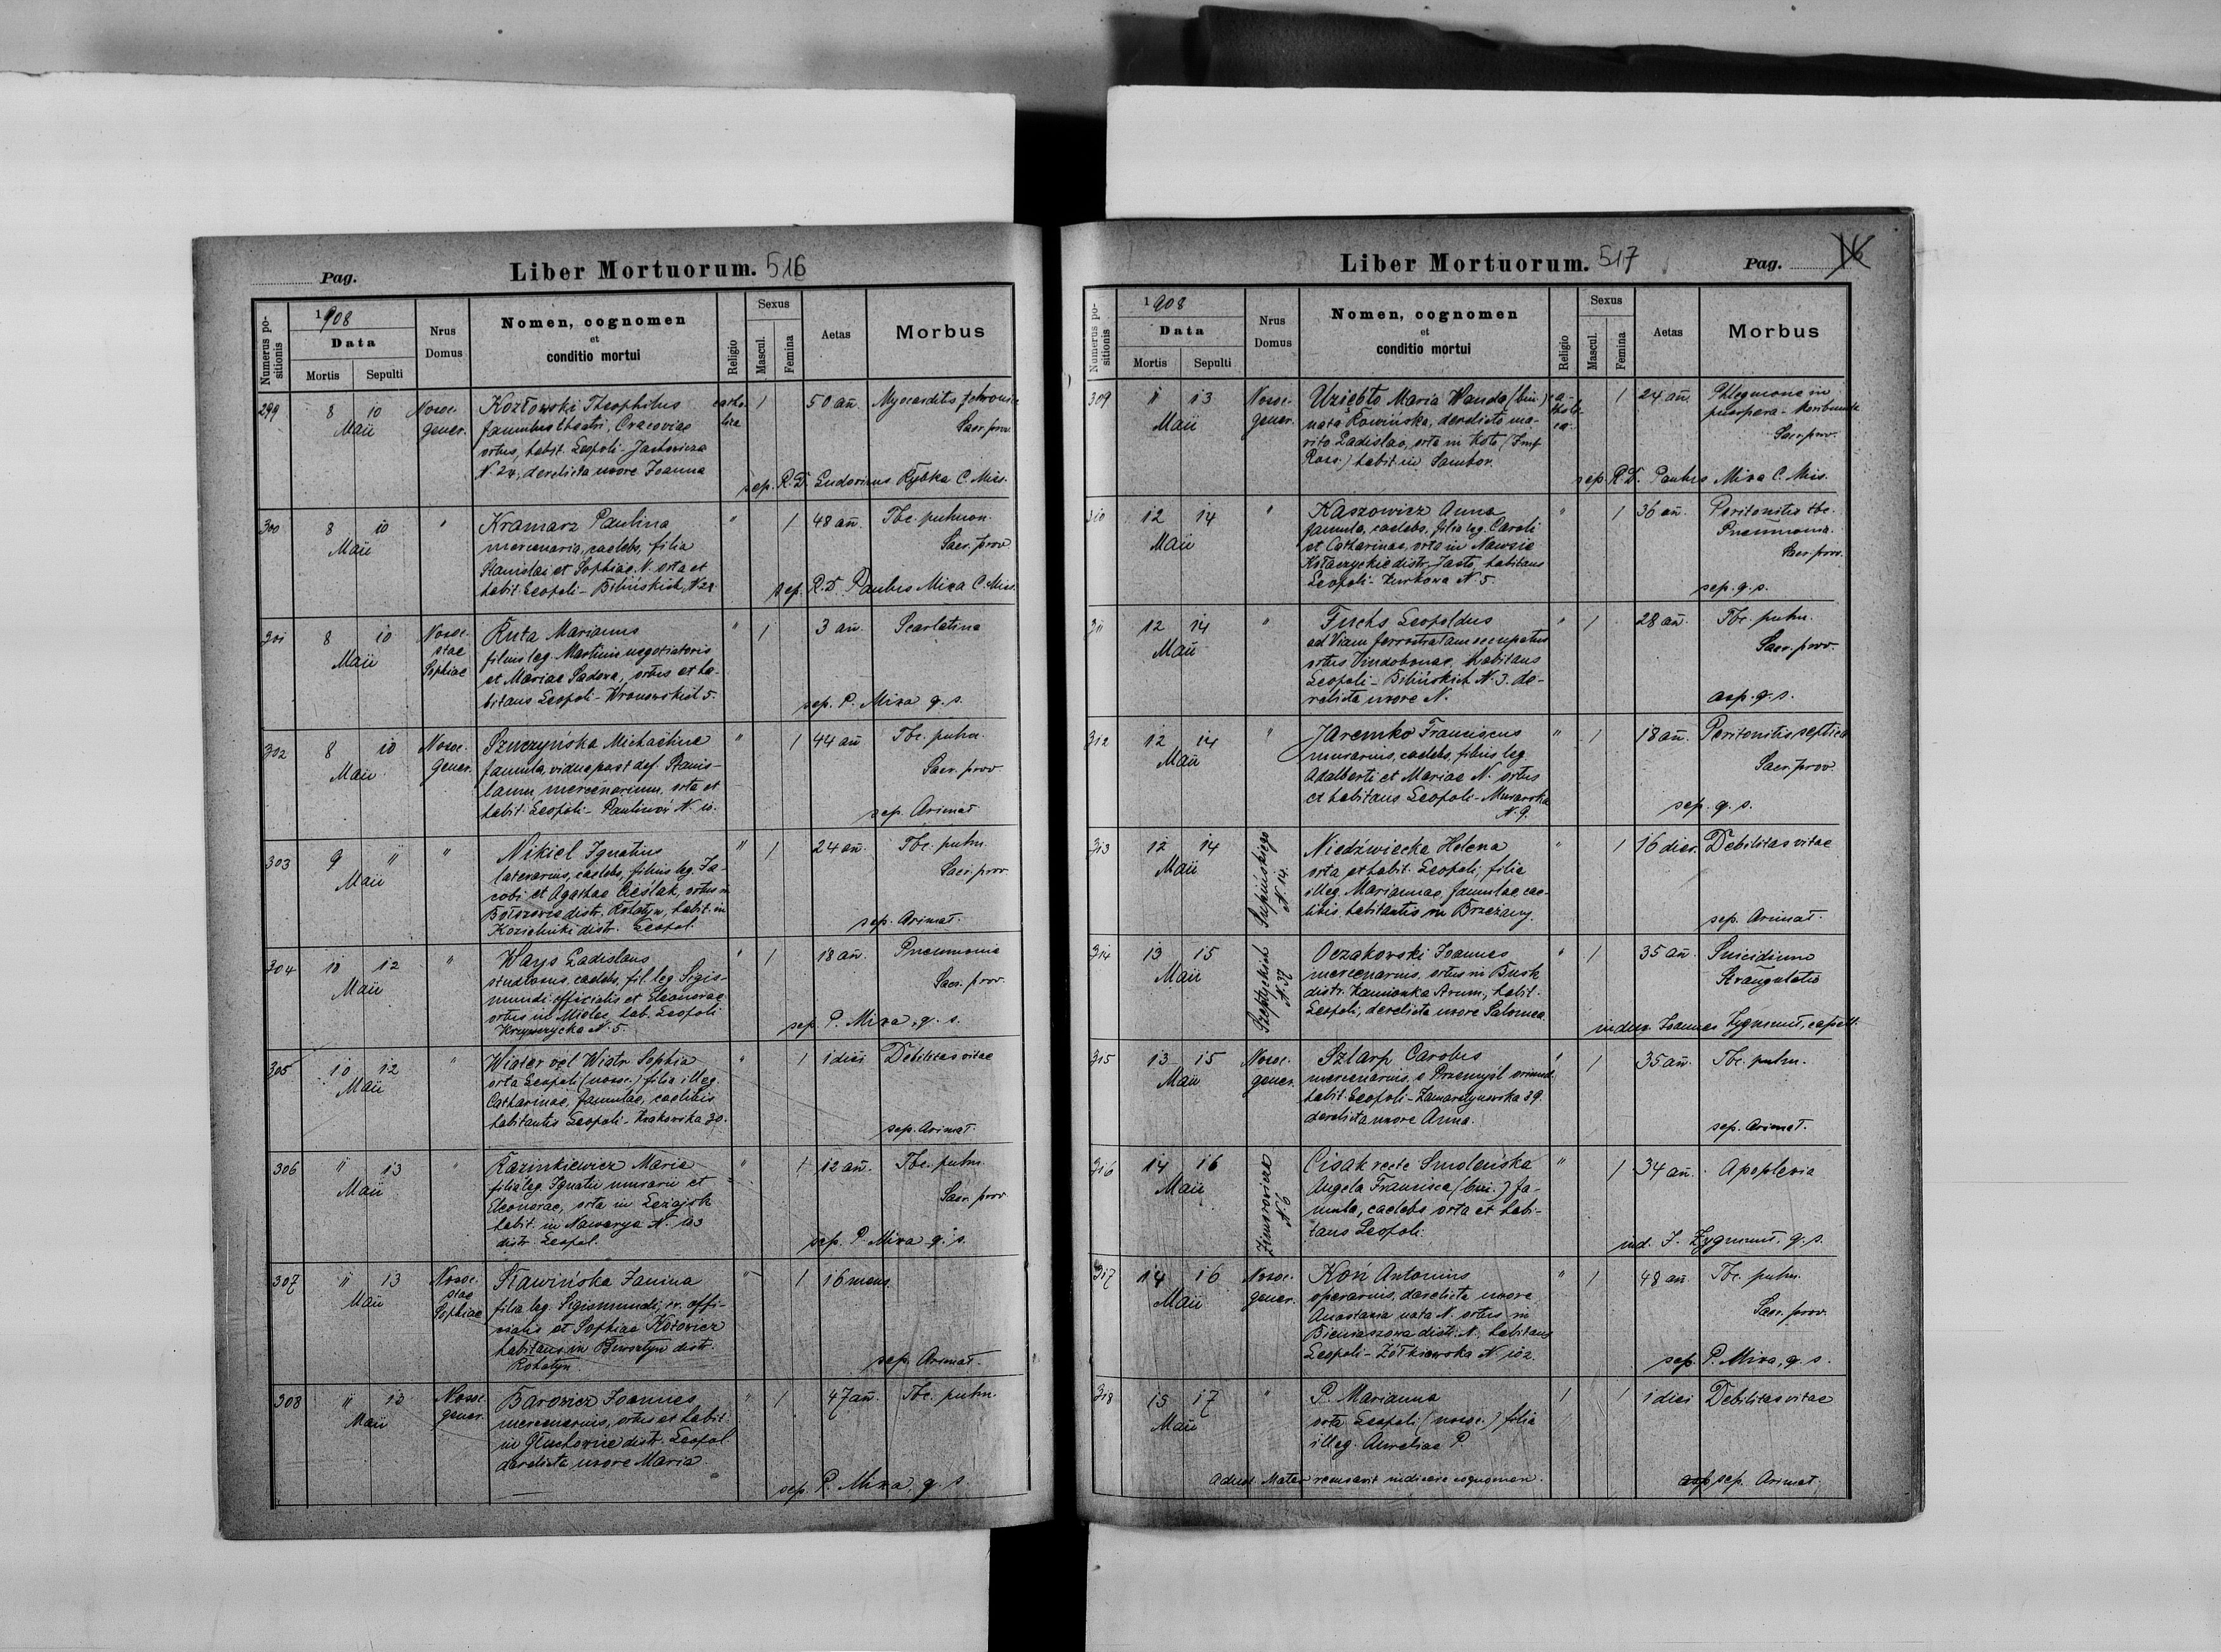 Pag.
Liber Mortuorum. 516
Numerus positionis
1908
Data
Mortis
Sepulti
Nrus Domus
Nomen, cognomen
et
conditio mortui
Religio
Sexus
Mascul.
Femina
Aetas
Morbus
299 8 10 Nosoc. Kozłowski Theophilus catho- 1 50 añ. Myocarditis chronica
Maii gener. famulus theatri, Cracoviae lica Sacr. prov.
ortus, habit. Leopoli - Jachowicza
N. 24, derelicta uxore Joanna
sep. R. D. Ludovicus Rybka C. Miss.
300 8 10 " Kramarz Paulina " 1 48 añ. Tbc. pulmon.
Maii mercenaria, caelebs, filia Sacr. prov.
Stanislai et Sophiae N. orta et
habit. Leopoli - Bilińskich N 21
sep. R. D. Paulus Mixa C. Miss.
301 8 10 Nosoc. Ruta Marianus " 1 3 añ. Scarlatina
Maii stae Sophiae filius leg. Martini negotiatoris
et Mariae Sadowa, ortus et ha-
bitans Leopoli - Wronowskich 5.
sep. P. Mixa q. s.
302 8 10 Nosoc. Szurzyńska Michaelina " 1 44 añ Tbc. pulm.
Maii gener. famula, vidua post def. Stanis- Sacr. prov.
laum mercenarium, orta et
habit. Leopoli - Paulinów N. 10.
sep. Arimat
303 9 11 " Nikiel Ignatius " 1 24 añ. Tbc. pulm.
Maii laterarius, caelebs, filius leg. Ja- Sacr. prov.
cobi et Agathae Cieślak, ortus in
Bołszowie distr. Rohatyn, habit. in
Kozielniki distr. Leopol.
sep. Arimat.
304 10 12 " Warys Ladislaus " 1 18 añ. Pneumonia
Maii studiosus, caelebs, fil. leg. Sigis- Sacr. prov.
mundi officialis et Eleonorae
ortus in Mielec, hab. Leopoli
Krzywczycka N. 5
sep. P. Mixa, q. s.
305 10 12 " Wiater vel Wiatr Sophia " 1 1 diei Debilitas vitae
Maii orta Leopoli (nosoc.) filia illeg.
Catharinae, famulae, caelibis
habitantis Leopoli - Krakowska 30.
sep. Arimat.
306 11 13 " Kazinkiewicz Maria " 1 12 añ. Tbc. pulm.
Maii filia leg. Ignatii murarii et Sacr. prov.
Eleonorae, orta in Leżajsk
habit. in Nawarya N. 103
distr. Leopol.
sep. P. Mixa q. s.
307 11 13 Nosoc. Sławińska Janina " 1 16 mens.
Maii stae Sophiae filia leg. Sigismundi, cr. offi-
cialis et Sophiae Kotowicz
habitans in Bursztyn distr.
Rohatyn
sep. Arimat.
308 11 13 Nosoc. Barowicz Joannes " 1 47 añ. Tbc. pulm.
Maii gener. mercenarius, ortus et habit.
in Głuchowice distr. Leopol.
derelicta uxore Maria
sep. P. Mixa, q. s.
Liber Mortuorum. 517
Pag.
Numerus positionis
1908
Data
Mortis
Sepulti
Nrus Domus
Nomen, cognomen
et
conditio mortui
Religio
Sexus
Mascul.
Femina
Aetas
Morbus
309 11 13 Nosoc. Uziębło Maria Wanda (bin.) ca- 1 24 añ. Phlegmona in
Maii gener. nata Rowińska, derelicto ma- tholi- puerpera - Moribunda
rito Ladislao, orta in Koto (Imp. ca. Sacr. prov.
Ross.) habit in Sambor.
sep. R. D. Paulus Mixa C. Miss.
310 12 14 " Kaszowicz Anna " 1 36 añ. Peritonitis tbc.
Maii famula, caelebs, filia leg. Caroli Pneumonia.
et Catharinae, orta in Nawsie Sacr. prov.
Kołaczyckie distr. Jasło, habitans
Leopoli - Zurkowa N 5.
sep. q. s.
311 12 14 " Fuchs Leopoldus " 1 28 añ. Tbc. pulm.
Maii ad Viam ferrostratam occupatus Sacr. prov.
ortus Vindobonae, habitans
Leopoli - Bilińskich N. 3. de-
relicta uxore N.
asp. q. s.
312 12 14 " Jaremko Franciscus " 1 18 añ. Peritonitis septica
Maii murarius, caelebs, filius leg. Sacr. prov.
Adalberti et Mariae N. ortus
et habitans Leopoli - Murarska
N. 9.
sep. q. s.
313 12 14 Supińskiego N. 14. Niedźwiecka Helena " 1 16 dies. Debilitas vitae
Maii orta et habit. Leopoli, filia
illeg. Mariannae, famulae, cae-
libis, habitantis in Brzeżany.
sep. Arimat.
314 13 15 Szeptyckich N. 37 Oczakowski Joannes " 1 35 añ. Suicidium
Maii mercenarius, ortus in Busk Strangulatio
distr. Kamionka Strum., habit.
Leopoli, derelicta uxore Salomea.
indux. Joannes Zygmunt, capell.
315 13 15 Nosoc. Szlarp Carolus " 1 35 añ. Tbc. pulm.
Maii gener. mercenarius, e Przemyśl oriund.
habit. Leopoli - Zamarstynowska 39.
derelicta uxore Anna.
sep. Arimat.
316 14 16 Zimorowicza N 6 Cisak recte Smoleńska " 1 34 añ. Apoplexia
Maii Angela Francisca (bin.) fa-
mula, caelebs orta et habi-
tans Leopoli.
ind. J. Zygmunt, q. s.
317 14 16 Nosoc. Koń Antonius " 1 48 añ Tbc. pulm.
Maii gener. operarius, derelicta uxore Sacr. prov.
Anastasia nata N. ortus in
Bieniaszowa distr. N., habitans
Leopoli - Żółkiewska N. 102.
sep. P. Mixa, q. s.
318 15 17 " P. Marianna 1 1 diei Debilitas vitae
Maii orta Leopoli (nosoc.) filia
illeg. Aureliae P.
Adnot. Mater recusavit indicare cognomen. sep. Arimat.